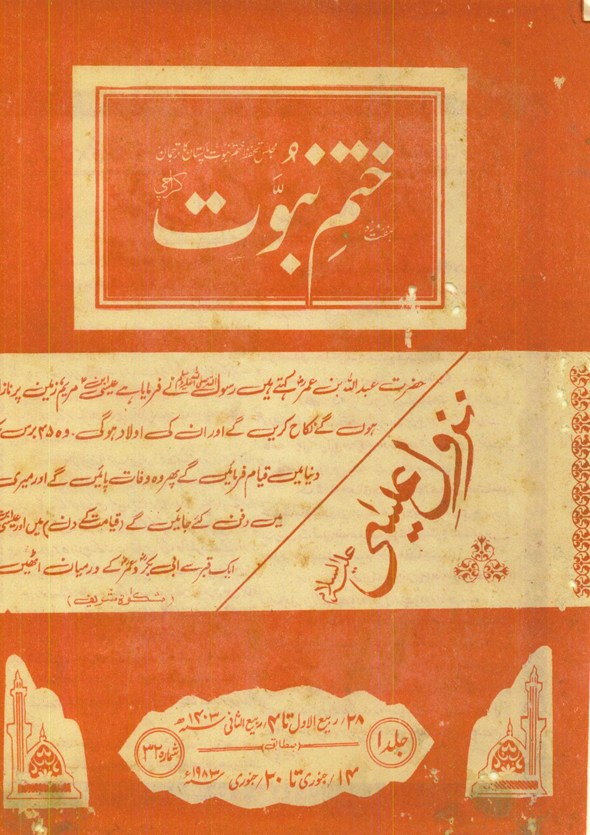 مجلس تحفظ ختم نبوت پاکستان کا ترجمان
ہفت روزہ
ختمِ نبوَّت
کراچی
نزولِ عیسیٰ
علیہ السلام
حضرت عبداللہ بن عمرؓ کہتے ہیں رسول اللہ صلی اللہ علیہ وسلم نے فرمایا ہے عیسیٰ ابن مریمؑ زمین پر
ہوں گے نکاح کریں گے اور ان کی اولاد ہوگی۔ وہ ۴۵ برس
دنیا میں قیام فرمائیں گے پھر وہ وفات پائیں گے اور میری
میں دفن کئے جائیں گے (قیامت کے دن) میں اور
ایک قبر سے ابی بکرؓ و عمرؓ کے درمیان اٹھیں
(مشکوٰۃ شریف)
جلد ۱
۲۸/ ربیع الاول تا ۴/ ربیع الثانی ۱۴۰۳ھ
(مطابق)
۱۴/ جنوری تا ۲۰/ جنوری ۱۹۸۳ء
شمارہ ۳۲